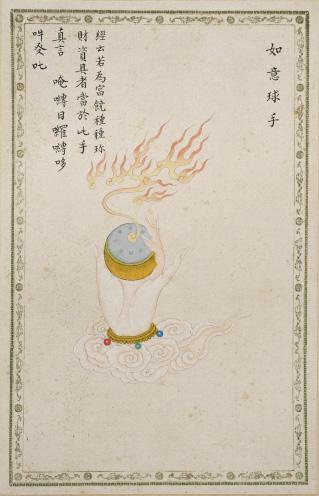 如意球手
經云若為富饒種種珎
財資具者當於此手
真言　唵嚩日囉嚩哆
吽癹吒